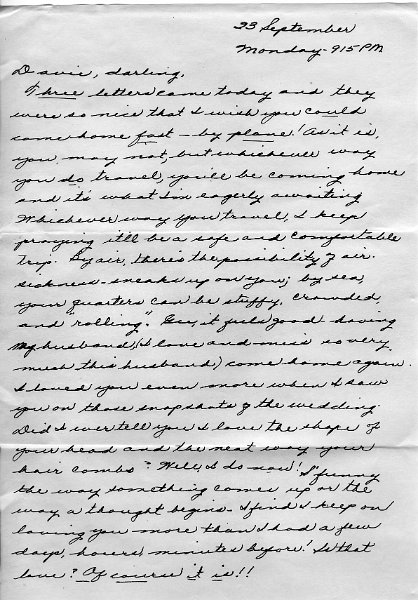 23 September
Monday - 915 PM
Davie, darling,
Three letters came today and they
were so nice that I wish you could
come home fast - by plane! As it is,
you may not, but whichever way
you do travel, you'll be coming home
and it's what I'm eagerly awaiting
Whichever way you travel, I keep
praying it'll be a safe and comfortable
trip. By air, there's the possibility of air-
sickness - sneaks up on you; by sea,
your quarters can be stuffy, crowded,
and "rolling". Gee, it feels good having
my husband, (I love and miss so very
much this husband) come home again.
I loved you even more when I saw
you on those snapshots of the wedding.
Did I ever tell you I love the shape of
your head and the neat way your
hair combs? Well, I do now! 'S funny
the way something comes up or the
way a thought begins - I find I keep on
loving you more than I had a few
days, hours, minutes before! Is that
love? Of course it is!!